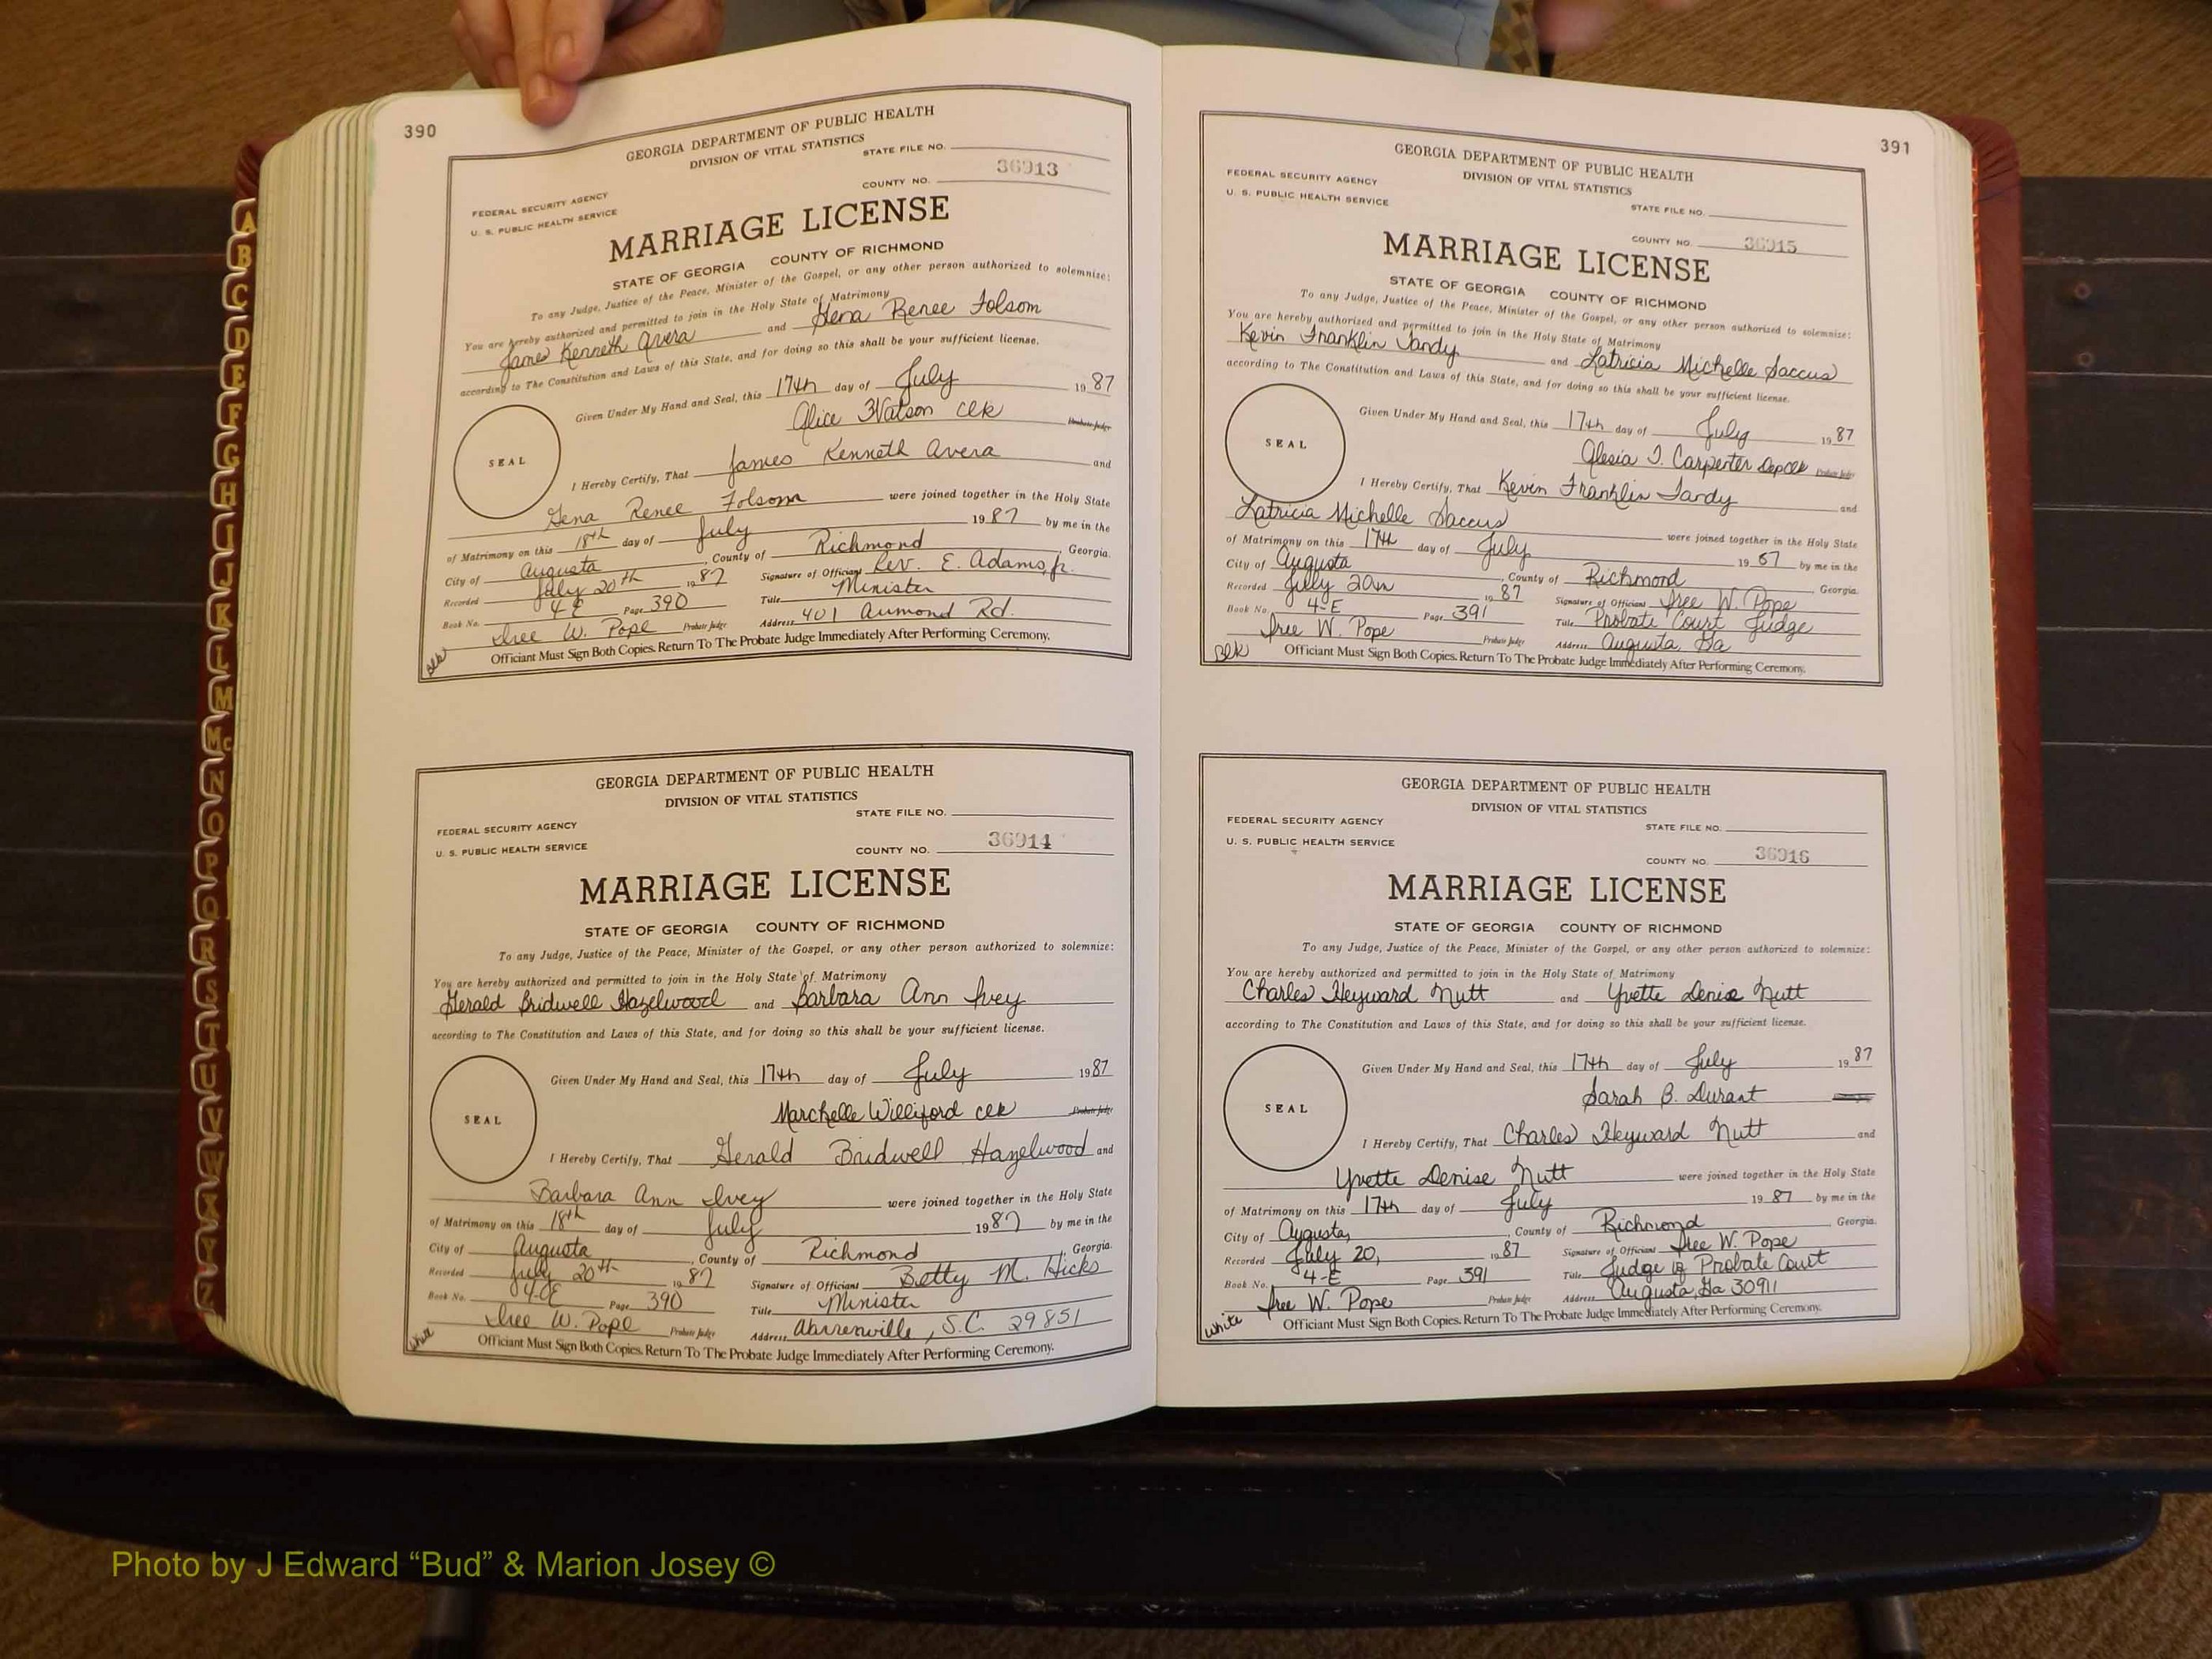 390
GEORGIA DEPARTMENT OF PUBLIC HEALTH
DIVISION OF VITAL STATISTICS
STATE FILE NO.
36913
COUNTY NO.
FEDERAL SECURITY AGENCY
U. S. PUBLIC HEALTH SERVICE
MARRIAGE LICENSE
STATE OF GEORGIA COUNTY OF RICHMOND
To any Judge, Justice of the Peace, Minister of the Gospel, or any other person authorized to solemnize:
You are hereby authorized and permitted to join in the Holy State of Matrimony
James Kenneth Avera and Gena Renee Folsom
according to The Constitution and Laws of this State, and for doing so this shall be your sufficient license.
Given Under My Hand and Seal, this 17th day of July 1987
Alice Watson clk Probate Judge
SEAL
I Hereby Certify, That James Kenneth Avera and
Gena Renee Folsom were joined together in the Holy State
of Matrimony on this 18th day of July 1987 by me in the
City of Augusta, County of Richmond, Georgia.
Recorded July 20th 1987 Signature of Officiant Rev. E. Adams, Jr.
Book No. 4-E Page 390 Title Minister
W. Pope Probate Judge Address 401 Aumond Rd.
Officiant Must Sign Both Copies. Return To The Probate Judge Immediately After Performing Ceremony.
blk
GEORGIA DEPARTMENT OF PUBLIC HEALTH
DIVISION OF VITAL STATISTICS
STATE FILE NO.
FEDERAL SECURITY AGENCY
U. S. PUBLIC HEALTH SERVICE
COUNTY NO. 36914
MARRIAGE LICENSE
STATE OF GEORGIA COUNTY OF RICHMOND
To any Judge, Justice of the Peace, Minister of the Gospel, or any other person authorized to solemnize:
You are hereby authorized and permitted to join in the Holy State of Matrimony
Gerald Bridwell Hazelwood and Barbara Ann Ivey
according to The Constitution and Laws of this State, and for doing so this shall be your sufficient license.
Given Under My Hand and Seal, this 17th day of July 1987
Marchelle Williford clk Probate Judge
SEAL
I Hereby Certify, That Gerald Bridwell Hazelwood and
Barbara Ann Ivey were joined together in the Holy State
of Matrimony on this 18th day of July 1987 by me in the
City of Augusta, County of Richmond, Georgia.
Recorded July 20th 1987 Signature of Officiant Betty M. Hicks
Book No. Page 390 Title Minister
W. Pope Probate Judge Address Warrenville, S.C. 29851
Officiant Must Sign Both Copies. Return To The Probate Judge Immediately After Performing Ceremony.
White
391
GEORGIA DEPARTMENT OF PUBLIC HEALTH
DIVISION OF VITAL STATISTICS
FEDERAL SECURITY AGENCY
U. S. PUBLIC HEALTH SERVICE
STATE FILE NO.
COUNTY NO. 36915
MARRIAGE LICENSE
STATE OF GEORGIA COUNTY OF RICHMOND
To any Judge, Justice of the Peace, Minister of the Gospel, or any other person authorized to solemnize:
You are hereby authorized and permitted to join in the Holy State of Matrimony
Kevin Franklin Tandy and Latricia Michelle Saccus
according to The Constitution and Laws of this State, and for doing so this shall be your sufficient license.
Given Under My Hand and Seal, this 17th day of July 1987
Carpenter Probate Judge
SEAL
I Hereby Certify, That Kevin Franklin Tandy and
Latricia Michelle Saccus were joined together in the Holy State
of Matrimony on this 17th day of July 1987 by me in the
City of Augusta, County of Richmond Georgia.
Recorded July 1987 Signature of Officiant W. Pope
Book No. 4-E Page 391 Title Probate Court Judge
W. Pope Probate Judge Address Augusta, Ga
blk
Officiant Must Sign Both Copies. Return To The Probate Judge Immediately After Performing Ceremony.
GEORGIA DEPARTMENT OF PUBLIC HEALTH
DIVISION OF VITAL STATISTICS
FEDERAL SECURITY AGENCY
U. S. PUBLIC HEALTH SERVICE
STATE FILE NO.
COUNTY NO. 36916
MARRIAGE LICENSE
STATE OF GEORGIA COUNTY OF RICHMOND
To any Judge, Justice of the Peace, Minister of the Gospel, or any other person authorized to solemnize:
You are hereby authorized and permitted to join in the Holy State of Matrimony
Charles Heyward Nutt and Yvette Denise Nutt
according to The Constitution and Laws of this State, and for doing so this shall be your sufficient license.
Given Under My Hand and Seal, this 17th day of July 1987
Sarah B. Durant
SEAL
I Hereby Certify, That Charles Heyward Nutt and
Yvette Denise Nutt were joined together in the Holy State
of Matrimony on this 17th day of July 1987 by me in the
City of Augusta, County of Richmond Georgia.
Recorded July 20, 1987 Signature of Officiant W. Pope
Book No. 4-E Page 391 Title Judge of Probate Court
W. Pope Probate Judge Address Augusta, Ga 30911
White
Officiant Must Sign Both Copies. Return To The Probate Judge Immediately After Performing Ceremony.
A
B
C
D
E
F
G
H
I
J
K
L
M
Mc
N
O
P
Q
R
S
T
U
V
W
X
Y
Z
Photo by J Edward “Bud” & Marion Josey ©